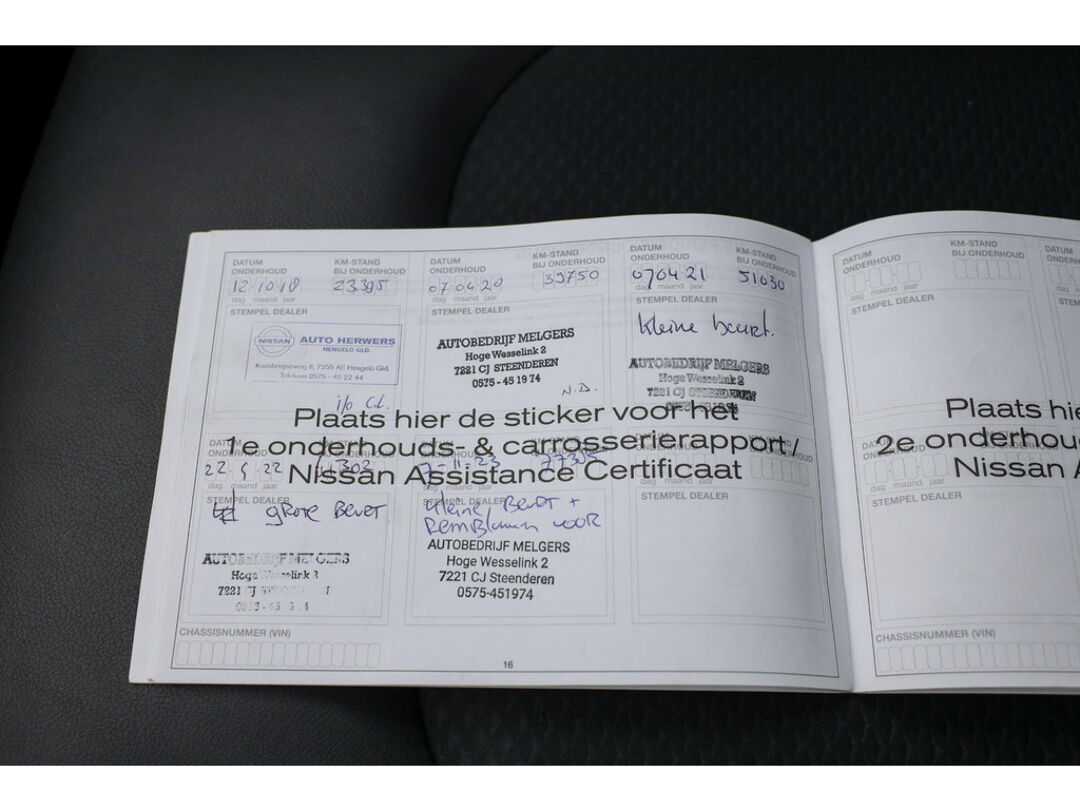 DATUM ONDERHOUD
KM-STAND BIJ ONDERHOUD
12 10 18
23395
dag maand jaar
STEMPEL DEALER
NISSAN AUTO HERWERS
HENGELO GLD.
Kruisbergseweg 8, 7255 AE Hengelo Gld.
Telefoon 0575 - 46 22 44
i/o
DATUM ONDERHOUD
KM-STAND BIJ ONDERHOUD
07 04 20
39750
dag maand jaar
STEMPEL DEALER
AUTOBEDRIJF MELGERS
Hoge Wesselink 2
7221 CJ STEENDEREN
0575 - 45 19 74
N.D.
DATUM ONDERHOUD
KM-STAND BIJ ONDERHOUD
07 04 21
51030
dag maand jaar
STEMPEL DEALER
kleine beurt.
AUTOBEDRIJF MELGERS
Hoge Wesselink 2
7221 CJ STEENDEREN
Plaats hier de sticker voor het
1e onderhouds- & carrosserierapport /
Nissan Assistance Certificaat
DATUM ONDERHOUD
22 22
dag maand jaar
STEMPEL DEALER
grote Beurt
AUTOBEDRIJF MELGERS
Hoge Wesselink 2
7221 CJ
7-11-23
dag maand jaar
STEMPEL DEALER
kleine Beurt +
Remblokken voor
AUTOBEDRIJF MELGERS
Hoge Wesselink 2
7221 CJ Steenderen
0575-451974
dag maand jaar
STEMPEL DEALER
CHASSISNUMMER (VIN)
16
DATUM ONDERHOUD
KM-STAND BIJ ONDERHOUD
dag maand jaar
STEMPEL DEALER
DATUM
Plaats hie
2e onderhoud
Nissan A
dag maand jaar
STEMPEL DEALER
CHASSISNUMMER (VIN)